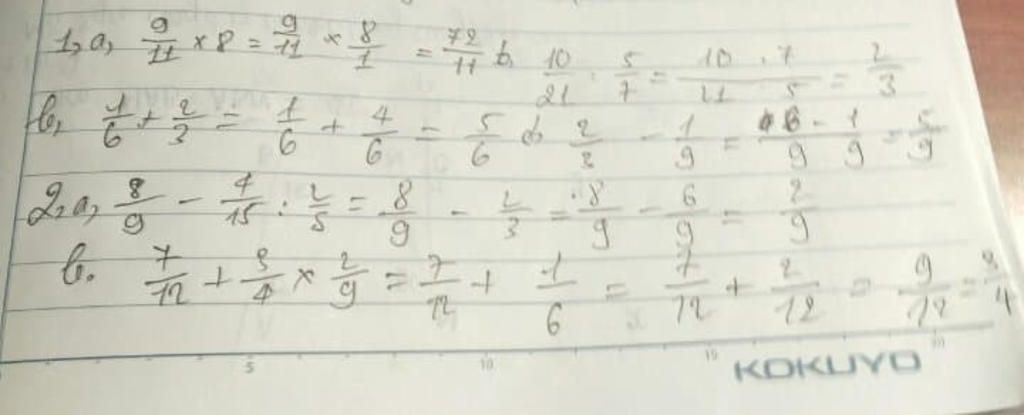 1, a, 9/11 × 8 = 9/11 × 8/1 = 72/11 b, 10/21 : 5/7 = 10 . 7/21 . 5 = 2/3
b, 1/6 + 2/3 = 1/6 + 4/6 = 5/6 d 2/3 - 1/9 = 6/9 - 1/9 = 5/9
2, a, 8/9 - 4/15 : 2/5 = 8/9 - 2/3 = 8/9 - 6/9 = 2/9
b. 7/12 + 3/4 × 2/9 = 7/12 + 1/6 = 7/12 + 2/12 = 9/12 = 3/4
5 10 15 20
KOKUYO